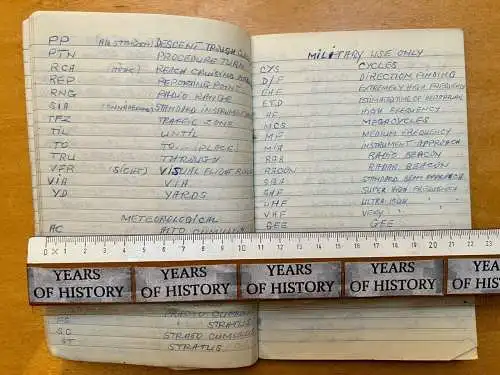 PP (ALL STATIONS) DESCENT TROUGH
PTN PROCEDURE TURN
RCH REACH CRUISING
REP REPORTING POINT
RNG RADIO RANGE
SIA STANDARD INSTRUMENT
TFZ TRAFFIC ZONE
TIL UNTIL
TO TO (PLACE)
TRU THROUGH
VFR (SIGHT) VISUAL FLIGHT
VIA VIA
YD YARDS
METEOROLOGICAL
AC ALTO CUMULUS
STRATUS
SC STRATO CUMULUS
ST STRATUS
MILITARY USE ONLY
CYS CYCLES
D/F DIRECTION FINDING
EHF EXTREMELY HIGH FREQUENCY
ETD ESTIMATED TIME OF DEPARTURE
HF HIGH FREQUENCY
MCS MEGACYCLES
MF MEDIUM FREQUENCY
MIA INSTRUMENT APPROACH
RAB RADIO BEACON
RACON RADAR BEACON
SBA STANDARD BEAM APPROACH
SHF SUPER HIGH FREQUENCY
UHF ULTRA HIGH "
VHF VERY " "
GEE GEE
0 ½ 1 2 3 4 5 6 7 8 9 10 11 12 13 14 15 16 17 18 19 20 21 22 23
YEARS OF HISTORY
YEARS OF HISTORY
YEARS OF HISTORY
YEARS OF HISTORY
YEA
OF HIS